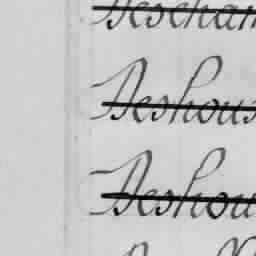 Descham
Deshous
Deshou